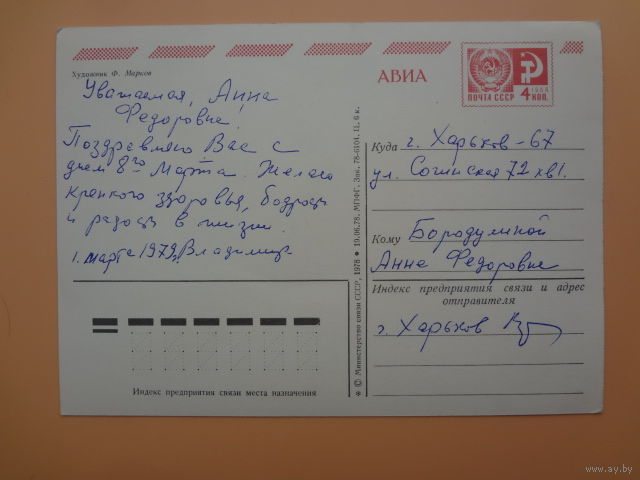 Художник Ф. Марков
Уважаемая, Анна
Федоровна!
Поздравляю Вас с
днем 8го Марта. Желаю
крепкого здоровья, бодрость
и радость в жизни.
1. марта 1979г. Владимир
АВИА
1966
ПОЧТА СССР 4 КОП.
© Министерство связи СССР, 1978 ● 19.06.78. МПФГ, Зак. 78-6104. Ц. 6 к.
Куда г. Харьков-67
ул. Сочинская 72 кв 1.
Кому Бородулиной
Анне Федоровне
Индекс предприятия связи и адрес
отправителя
г. Харьков
Индекс предприятия связи места назначения
www.ay.by